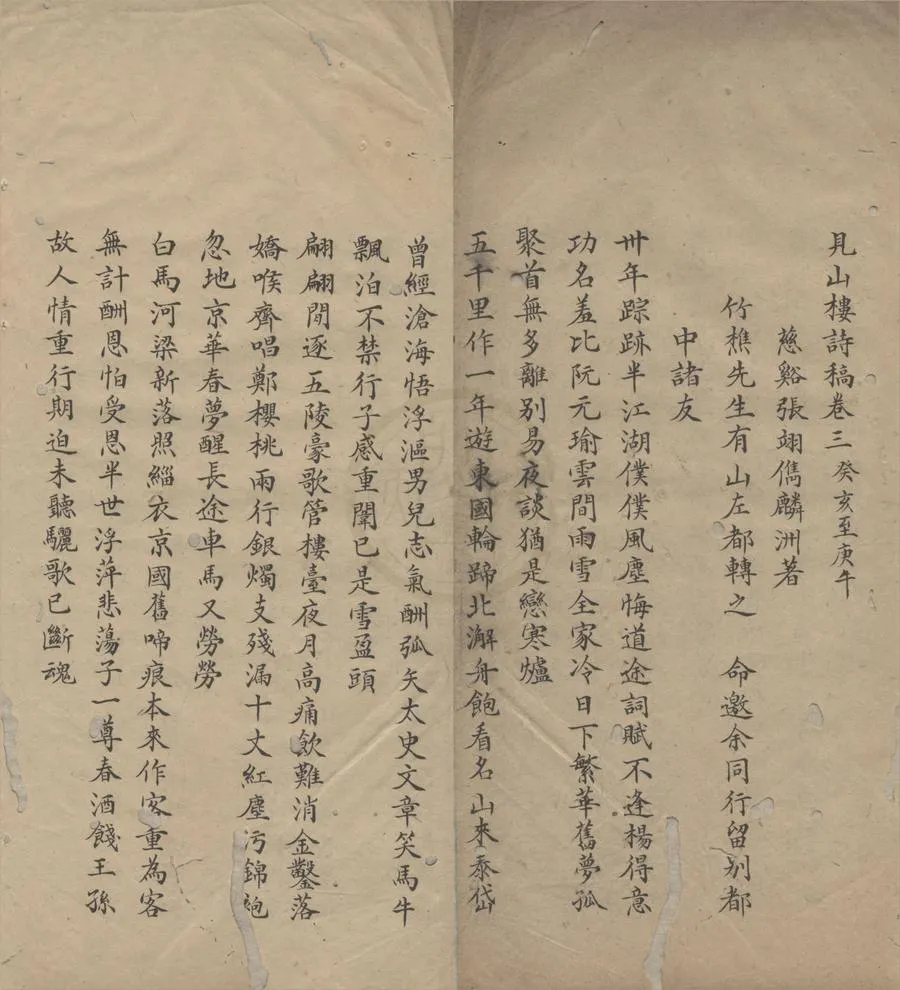 見山樓詩稿卷三 癸亥至庚午
慈谿張翊儁麟洲著
竹樵先生有山左都轉之 命邀余同行留别都
中諸友
卅年踪跡半江湖僕僕風塵悔道途詞賦不逢楊得意
功名羞比阮元瑜雲間雨雪全家冷日下繁華舊夢孤
聚首無多離别易夜談猶是戀寒爐
五千里作一年遊東國輪蹄北澥舟飽看名山來泰岱
曾經滄海悟浮漚男兒志氣酬弧矢太史文章笑馬牛
飄泊不禁行子感重闈已是雪盈頭
翩翩閒逐五陵豪歌管樓臺夜月高痛飲難消金鑿落
嬌喉齊唱鄭櫻桃兩行銀燭支殘漏十丈紅塵污錦袍
忽地京華春夢醒長途車馬又勞勞
白馬河梁新落照緇衣京國舊啼痕本來作客重為客
無計酬恩怕受恩半世浮萍悲蕩子一尊春酒餞王孫
故人情重行期迫未聽驪歌已斷魂